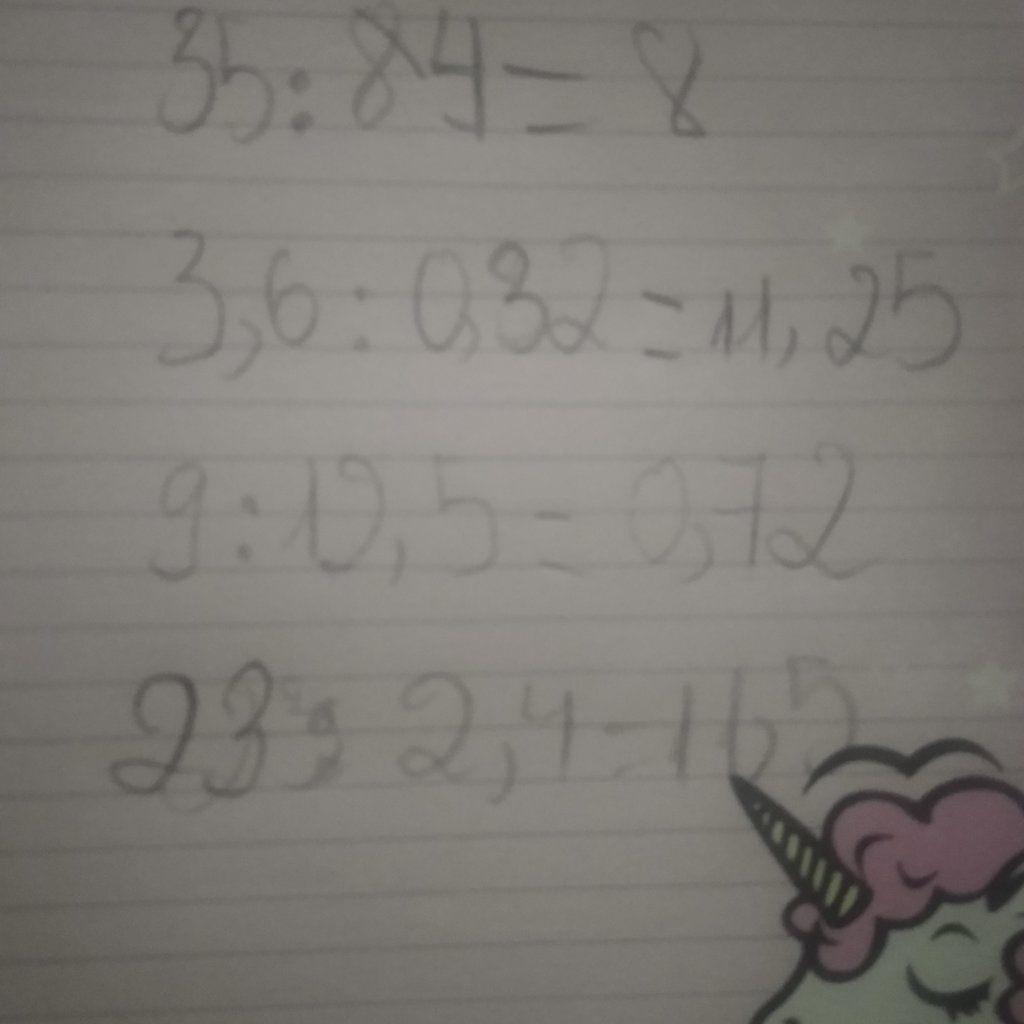 35:84=8
3,6:0,32=11,25
9:12,5=0,72
2,4=165